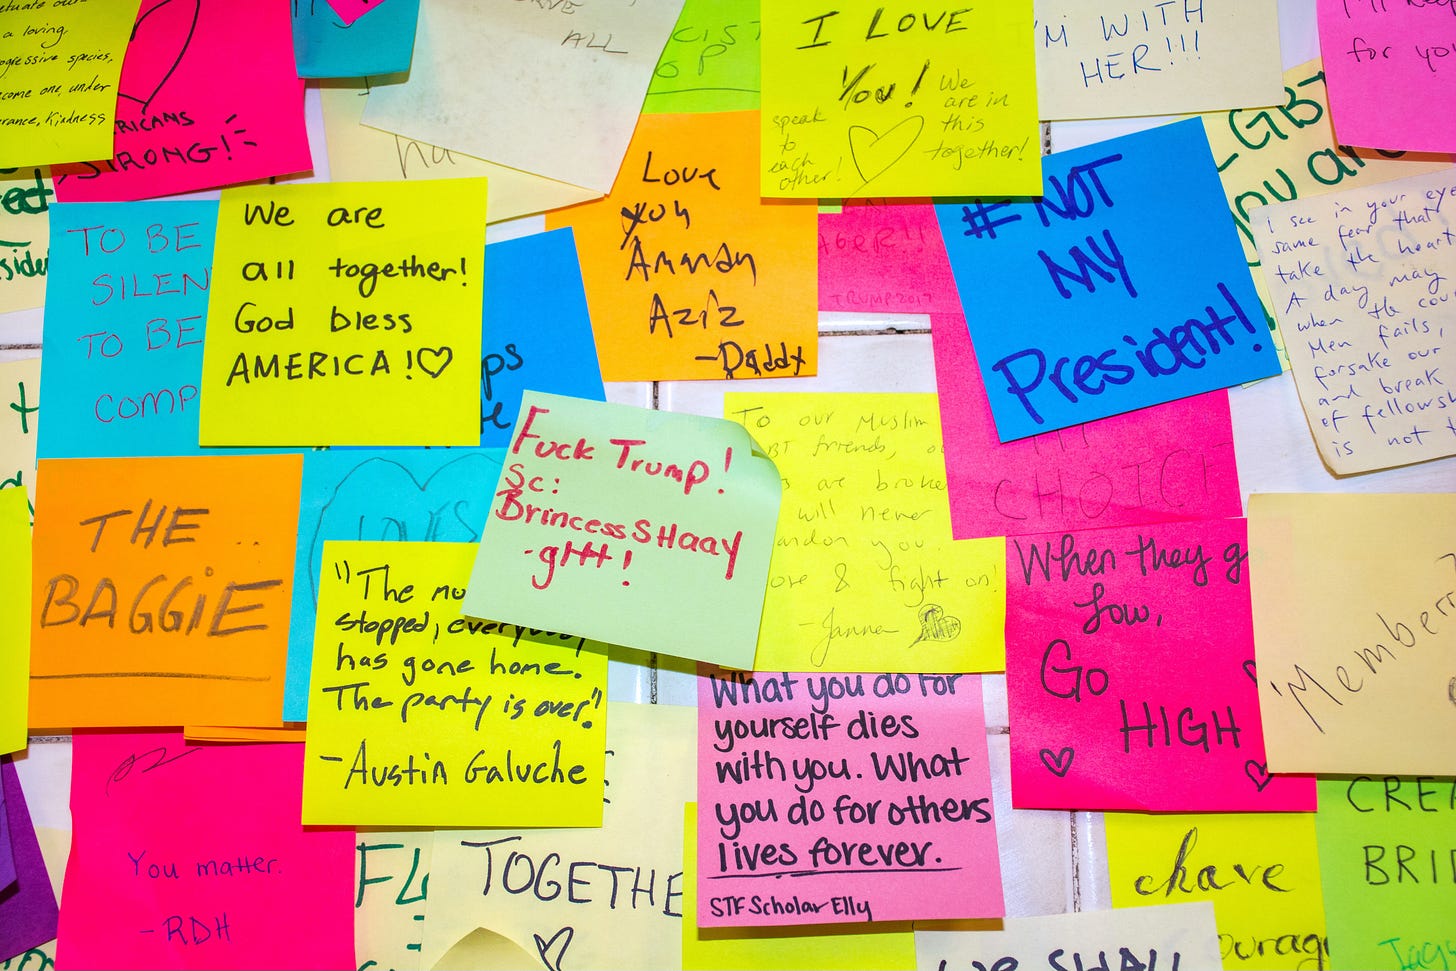 a loving
species,
come one, under
Kindness
STRONG!
ALL
I LOVE
You!
We
are in
this
together!
speak
to
each
other!
I'M WITH
HER!!!
for you
LGBT
you are
TO BE
SILEN
TO BE
COMP
We are
all together!
God bless
AMERICA!♡
Love
you
Amanda
Aziz
-Daddy
TRUMP 2017
#NOT
MY
President!
I see in your eye
same fear that
take the heart
A day may
when the cou
Men fails,
forsake our
and break
of fellowsh
is not t
Fuck Trump!
Sc:
BrincessSHaay
-ghtt!
To our Muslim
BT friends,
are broke
will never
andon you.
ove & fight on!
-Janna
CHOICE
THE
BAGGIE
LOVES
"The mu
stopped, everybody
has gone home.
The party is over."
-Austin Galuche
When they g
Low,
Go
HIGH
"Member
What you do for
yourself dies
with you. What
you do for others
lives forever.
STF Scholar Elly
You matter.
-RDH
TOGETHE
have
ourag
CREA
BRID
We SHALL